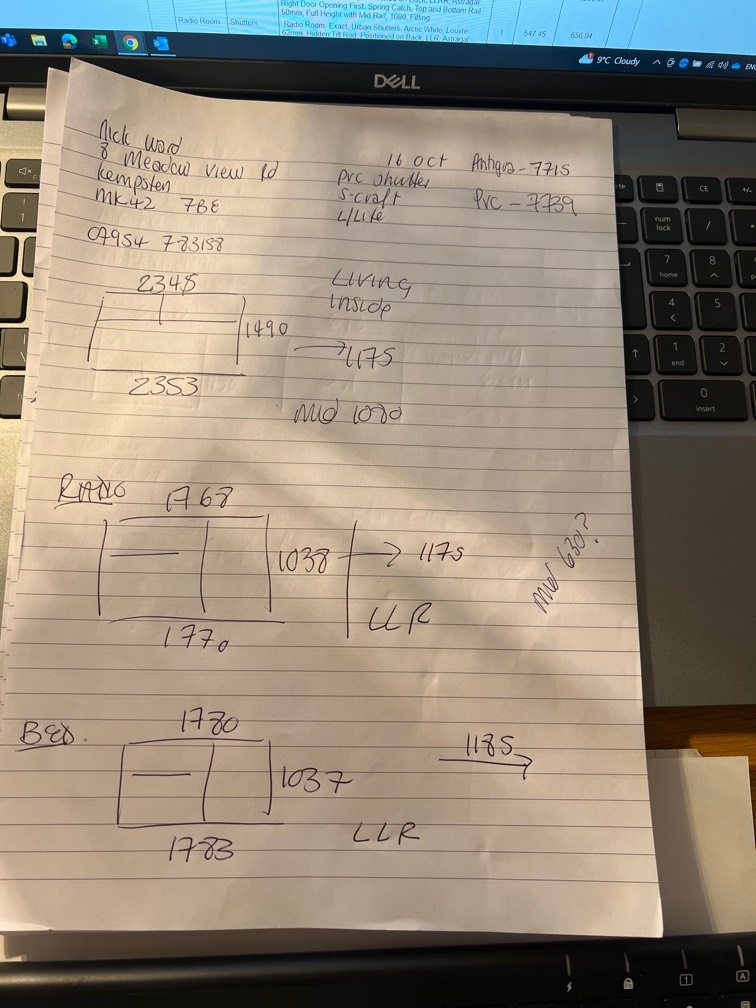 Right Door Opening First, Spring Catch, Top and Bottom Rail
50mm, Full Height with Mid Rail, 1080, Fitting
Radio Room Shutters Radio Room, Exact, Urban Shutters, Arctic White, Louvre
63mm, Hidden Tilt Rod, Positioned on Back, LLR, Astragal 1 547.45 656.94
9°C Cloudy
DELL
Nick Ward
8 Meadow View Rd
Kempston
MK42 7BE
07954 783158
16 Oct Antigua - 7715
PVC Shutter PVC - 7739
S-Craft
L/Life
2348
1490
2353
Living
inside
→ 1175
Mid 1080
RADIO
1768
1038 → 1175
1770
LLR
Mid 630?
BED.
1780
1037
1783
1185
LLR
CE
+/-
num
lock
/
7
home
8
4
5
1
end
2
0
insert